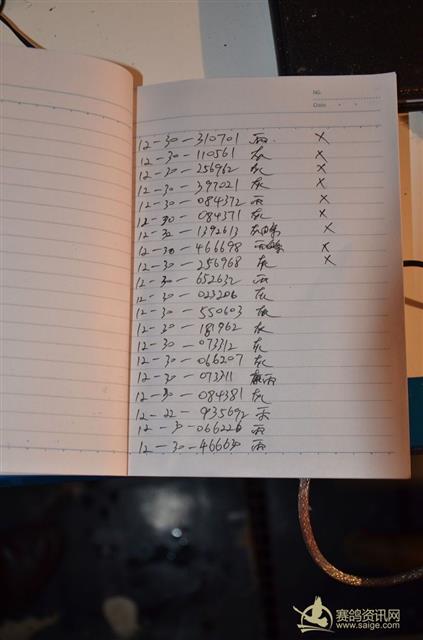 NO.
Date
12-30-310701 雨 ×
12-30-110561 灰 ×
12-30-256962 灰 ×
12-30-397021 灰 ×
12-30-084372 雨 ×
12-30-084371 灰 ×
12-32-1392613 灰白条 ×
12-30-466698 雨白条 ×
12-30-256968 灰 ×
12-30-652632 雨
12-30-023206 灰
12-30-550603 灰
12-30-181962 灰
12-30-073312 灰
12-30-066207 灰
12-30-073311 雨
12-30-084381 灰
12-22-935692 雨
12-30-066226 雨
12-30-466630 雨
赛鸽资讯网
www.saige.com